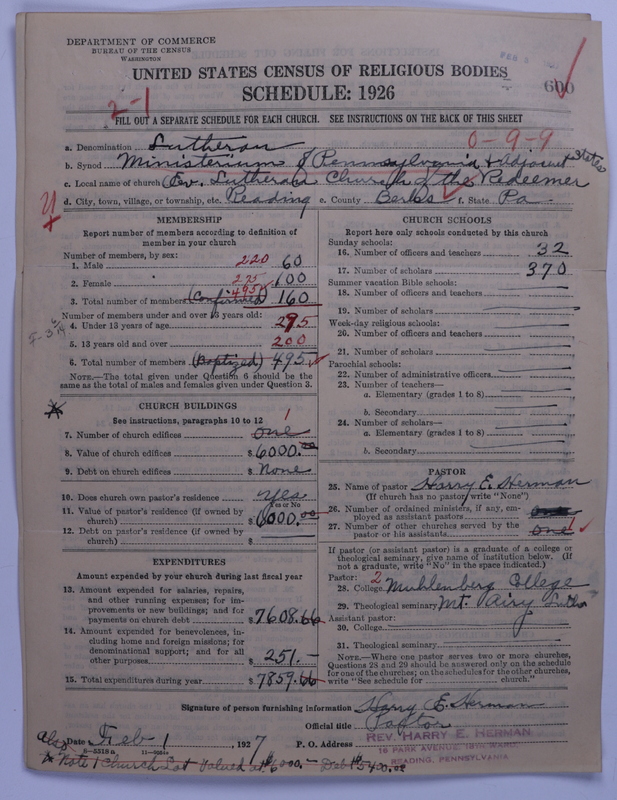 DEPARTMENT OF COMMERCE
BUREAU OF THE CENSUS
WASHINGTON
UNITED STATES CENSUS OF RELIGIOUS BODIES
SCHEDULE: 1926
600
2-1
FILL OUT A SEPARATE SCHEDULE FOR EACH CHURCH. SEE INSTRUCTIONS ON THE BACK OF THIS SHEET
0-9-9
a. Denomination Lutheran
b. Synod Ministerium of Pennsylvania & Adjacent States
c. Local name of church Ev. Lutheran Church of the Redeemer
d. City, town, village, or township, etc. Reading e. County Berks f. State Pa
MEMBERSHIP
Report number of members according to definition of member in your church
Number of members, by sex:
1. Male 220 60
2. Female 275 100
3. Total number of members (Confirmed) 495 160
Number of members under and over 13 years old:
4. Under 13 years of age 295
5. 13 years old and over 200
6. Total number of members (Baptized) 495
NOTE.—The total given under Question 6 should be the same as the total of males and females given under Question 3.
CHURCH BUILDINGS
See instructions, paragraphs 10 to 12
7. Number of church edifices one 1
8. Value of church edifices $6000.00
9. Debt on church edifices $ None
10. Does church own pastor's residence Yes
Yes or No
11. Value of pastor's residence (if owned by church) $6000.00
12. Debt on pastor's residence (if owned by church) $
EXPENDITURES
Amount expended by your church during last fiscal year
13. Amount expended for salaries, repairs, and other running expenses; for improvements or new buildings; and for payments on church debt $7608.66
14. Amount expended for benevolences, including home and foreign missions; for denominational support; and for all other purposes $251.-
15. Total expenditures during year $7859.66
CHURCH SCHOOLS
Report here only schools conducted by this church
Sunday schools:
16. Number of officers and teachers 32
17. Number of scholars 370
Summer vacation Bible schools:
18. Number of officers and teachers
19. Number of scholars
Week-day religious schools:
20. Number of officers and teachers
21. Number of scholars
Parochial schools:
22. Number of administrative officers
23. Number of teachers—
a. Elementary (grades 1 to 8)
b. Secondary
24. Number of scholars—
a. Elementary (grades 1 to 8)
b. Secondary
PASTOR
25. Name of pastor Harry E. Herman
(If church has no pastor write "None")
26. Number of ordained ministers, if any, employed as assistant pastors
27. Number of other churches served by the pastor or his assistants
If pastor (or assistant pastor) is a graduate of a college or theological seminary, give name of institution below. (If not a graduate, write "No" in the space indicated.)
Pastor: 2
28. College Muhlenberg College
29. Theological seminary Mt. Airy Luth
Assistant pastor:
30. College
31. Theological seminary
NOTE.—Where one pastor serves two or more churches, Questions 28 and 29 should be answered only on the schedule for one of the churches; on the schedules for the other churches, write "See schedule for church."
Signature of person furnishing information Harry E. Herman
Official title Pastor
Date Feb 1, 1927 P. O. Address
REV. HARRY E. HERMAN
READING, PENNSYLVANIA
Also
Note 1 Church Lot Valued at $6000.- Debt $5400.00